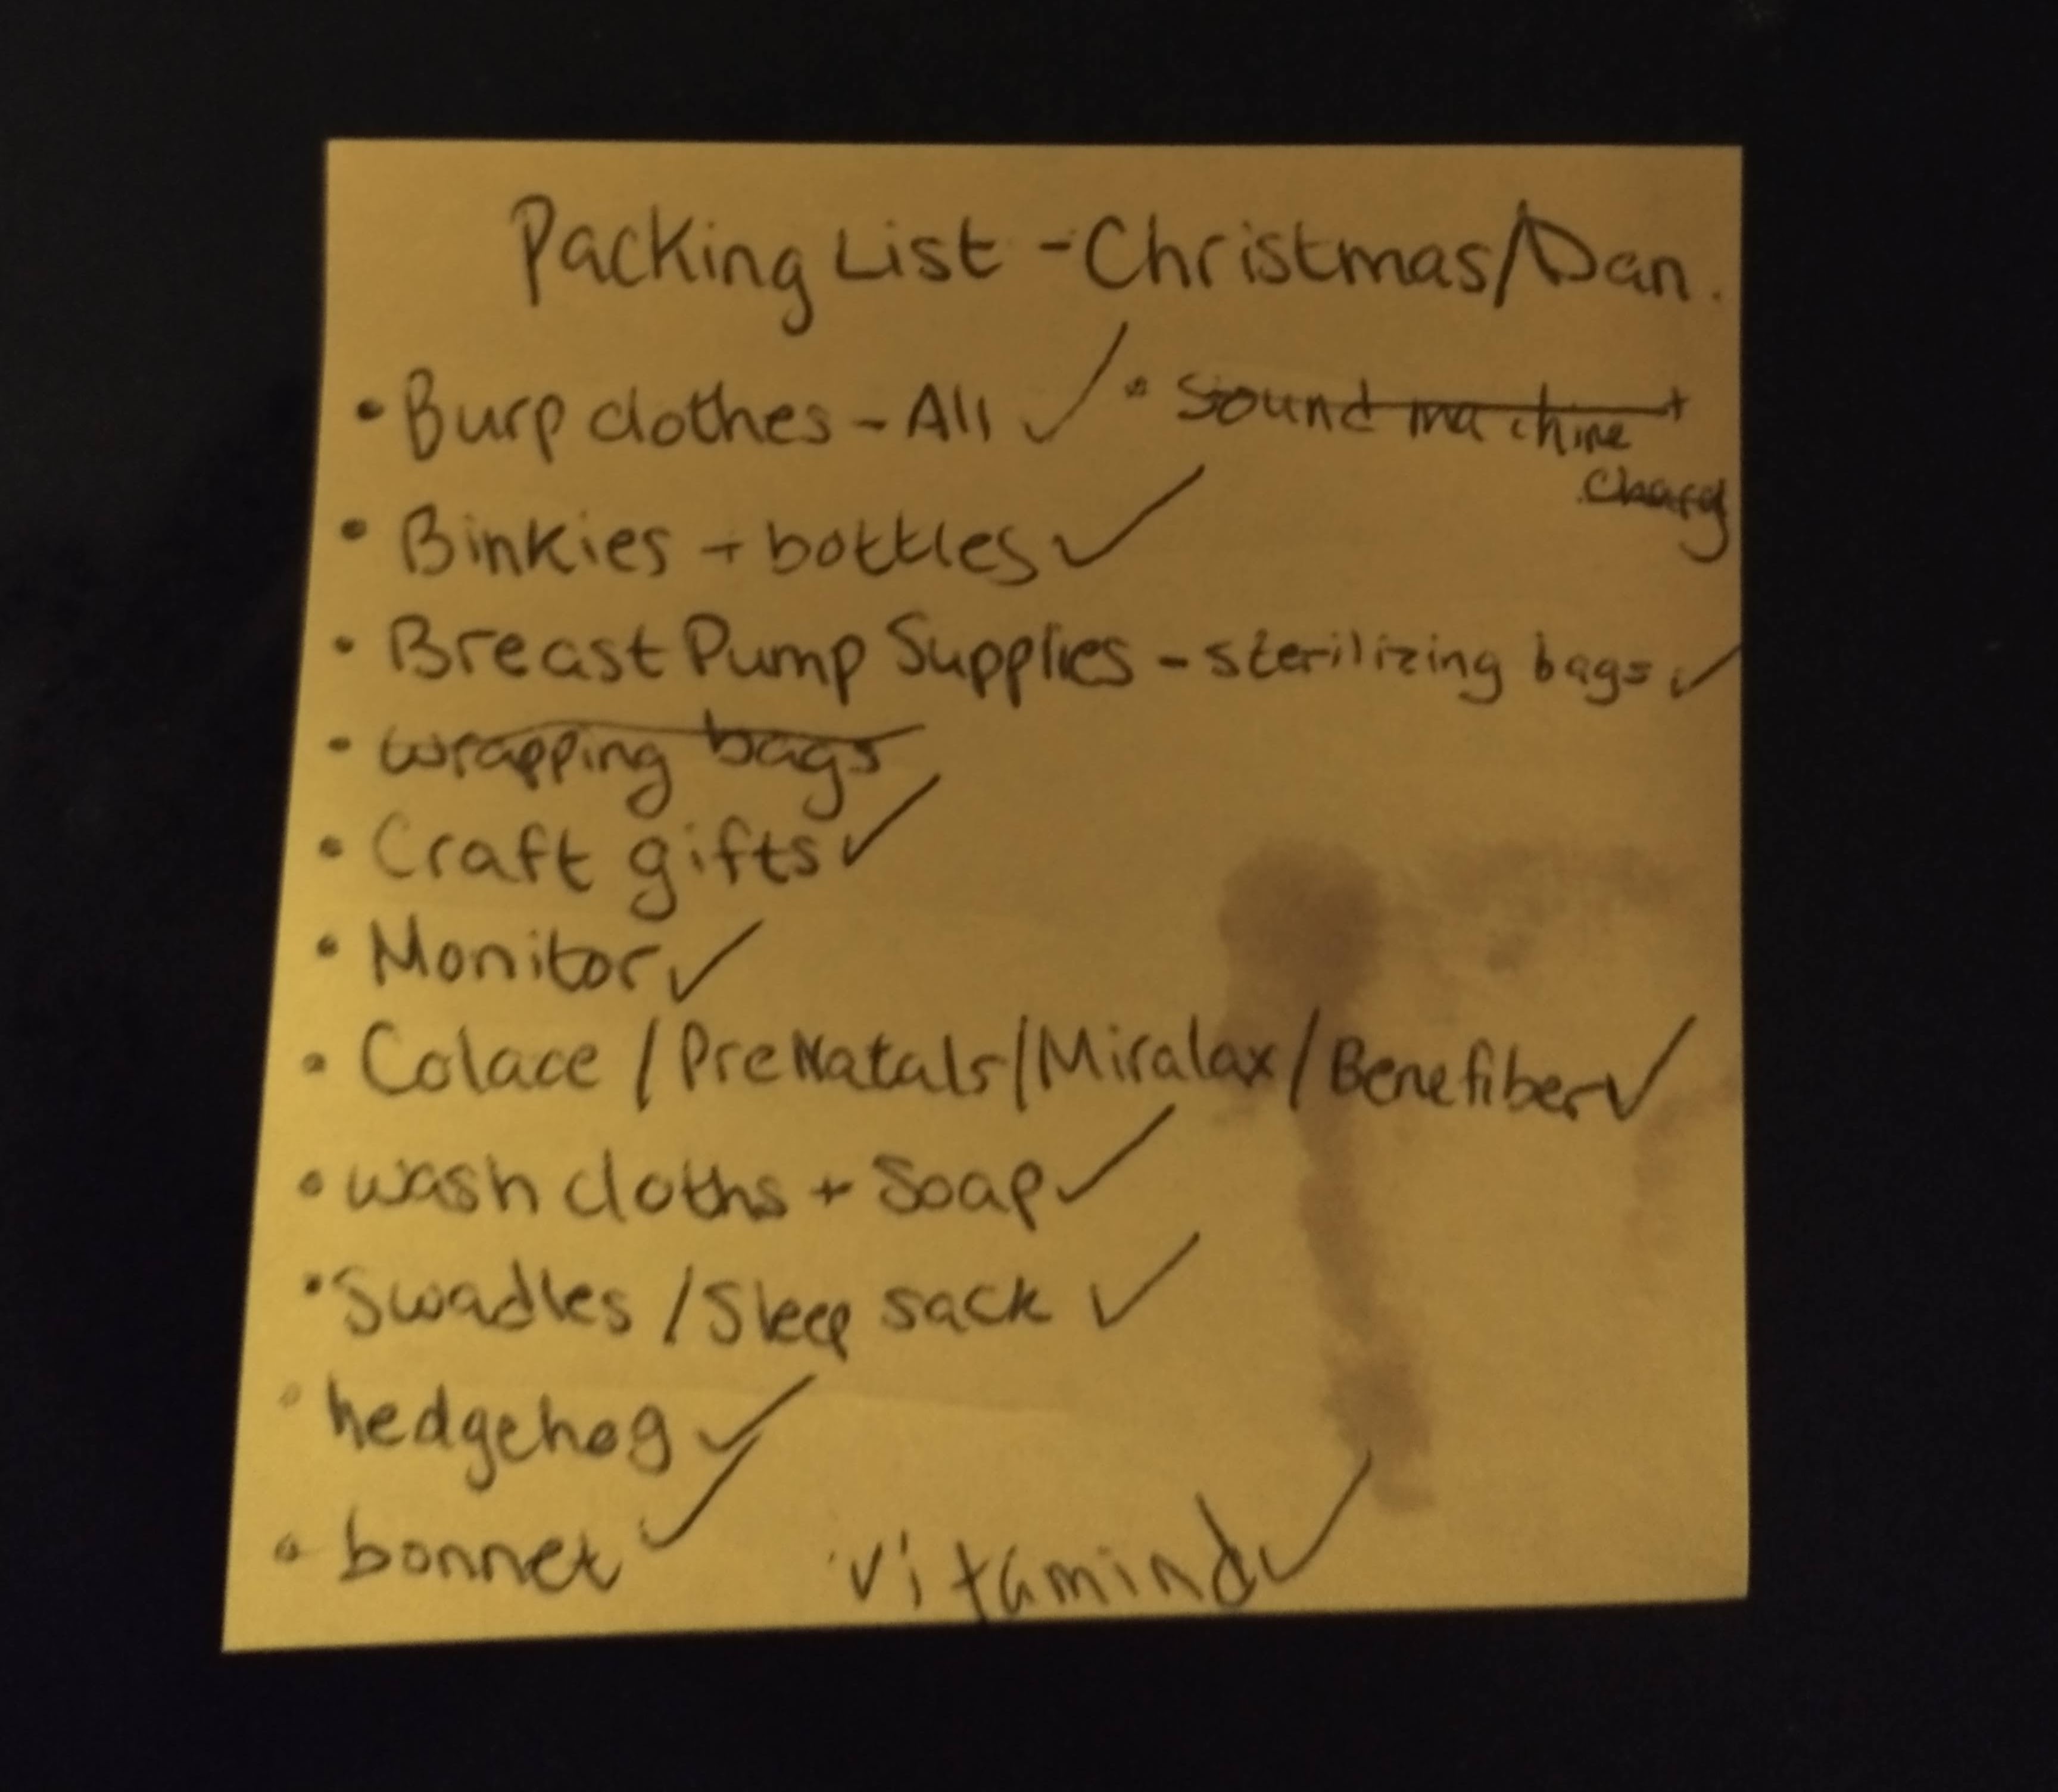 Packing List - Christmas/Dan.
• Burp clothes - All ✓ • Sound machine +
charg
• Binkies + bottles ✓
• Breast Pump Supplies - sterilizing bags ✓
• wrapping bags
• Craft gifts ✓
• Monitor ✓
• Colace / PreNatals / Miralax / Benefiber ✓
• wash cloths + Soap ✓
• Swadles / Sleep sack ✓
• hedgehog ✓
• bonnet ✓ vitamind ✓